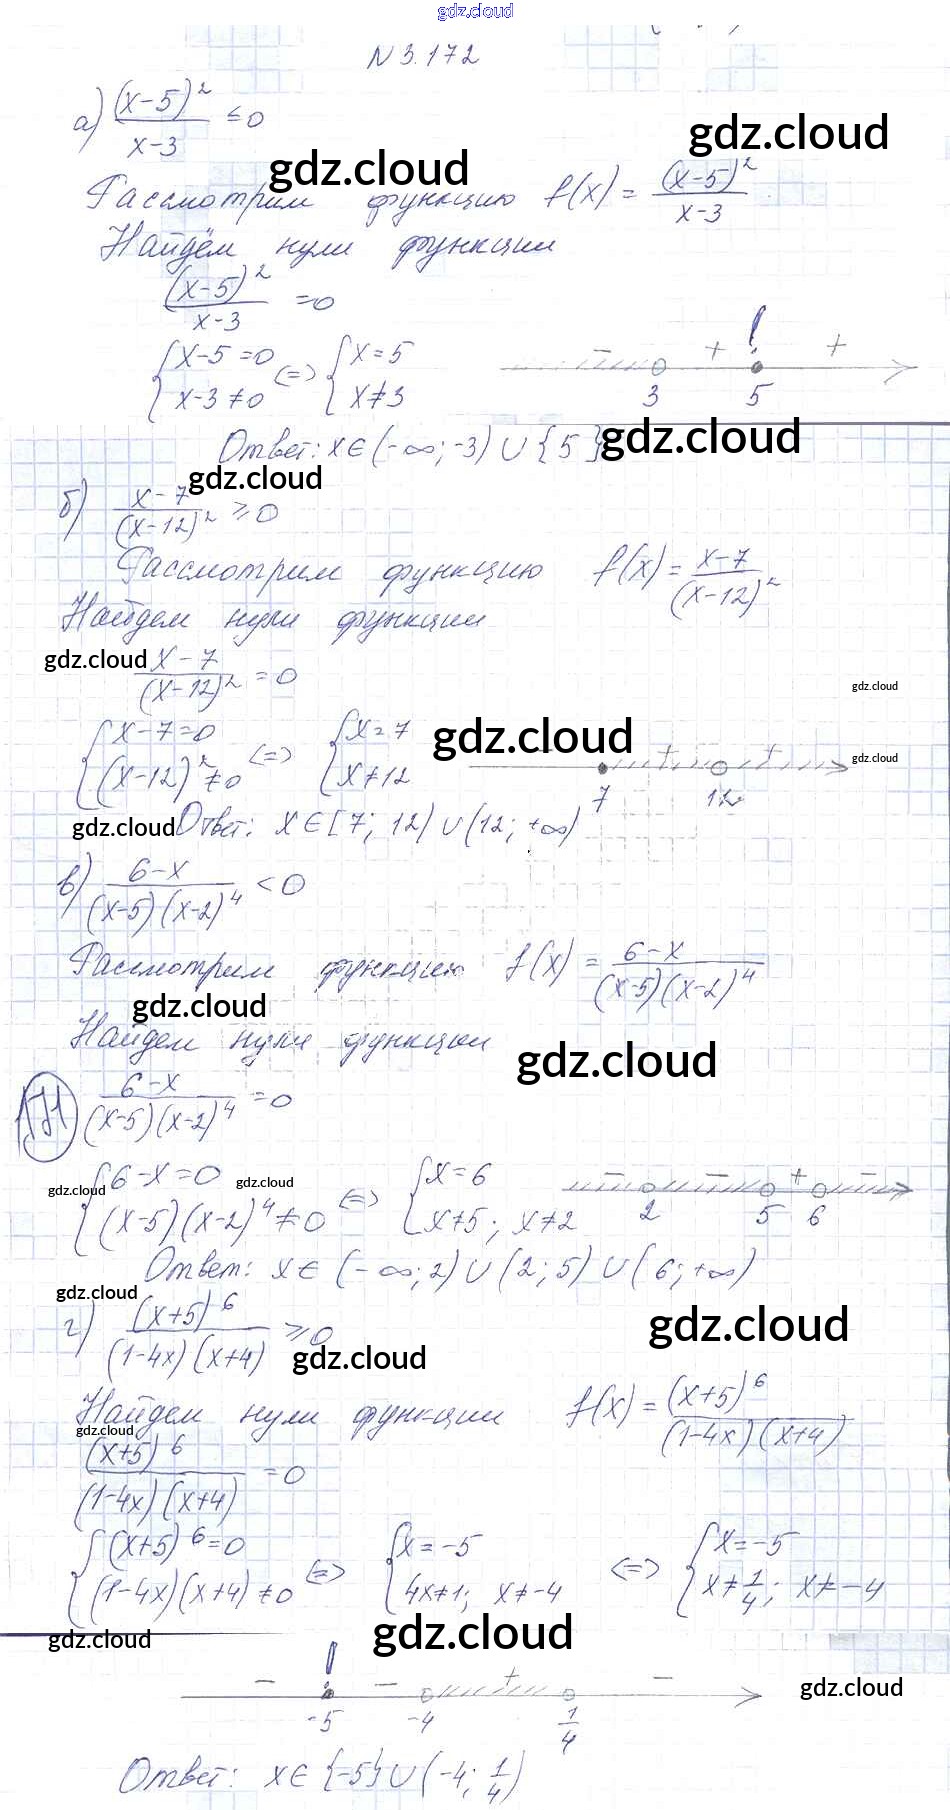 gdz.cloud
N 3.172
а) (x-5)²/(x-3) ≤ 0
gdz.cloud
gdz.cloud
Рассмотрим функцию f(x) = (x-5)²/(x-3)
Найдём нули функции
(x-5)²/(x-3) = 0
{ x-5=0 <=> { x=5
{ x-3≠0 { x≠3
− + ! +
3 5
Ответ: x∈(-∞; -3) ∪ {5}
gdz.cloud
gdz.cloud
б) (x-7)/(x-12)² ≥ 0
Рассмотрим функцию f(x) = (x-7)/(x-12)²
Найдем нули функции
gdz.cloud
(x-7)/(x-12)² = 0
gdz.cloud
{ x-7=0 <=> { x=7
{ (x-12)²≠0 { x≠12
gdz.cloud
gdz.cloud
+ +
7 12
gdz.cloud
Ответ: x∈[7; 12) ∪ (12; +∞)
в) (6-x)/((x-5)(x-2)⁴) < 0
Рассмотрим функцию f(x) = (6-x)/((x-5)(x-2)⁴)
gdz.cloud
Найдем нули функции
gdz.cloud
171
(6-x)/((x-5)(x-2)⁴) = 0
{ 6-x=0 <=> { x=6
{ (x-5)(x-2)⁴≠0 { x≠5; x≠2
gdz.cloud
gdz.cloud
− − + −
2 5 6
Ответ: x∈(-∞; 2) ∪ (2; 5) ∪ (6; +∞)
gdz.cloud
г) (x+5)⁶/((1-4x)(x+4)) ≥ 0
gdz.cloud
gdz.cloud
Найдем нули функции f(x) = (x+5)⁶/((1-4x)(x+4))
gdz.cloud
(x+5)⁶/((1-4x)(x+4)) = 0
{ (x+5)⁶=0 <=> { x=-5 <=> { x=-5
{ (1-4x)(x+4)≠0 { 4x≠1; x≠-4 { x≠1/4; x≠-4
gdz.cloud
gdz.cloud
gdz.cloud
− ! − + −
-5 -4 1/4
Ответ: x∈{-5} ∪ (-4; 1/4)